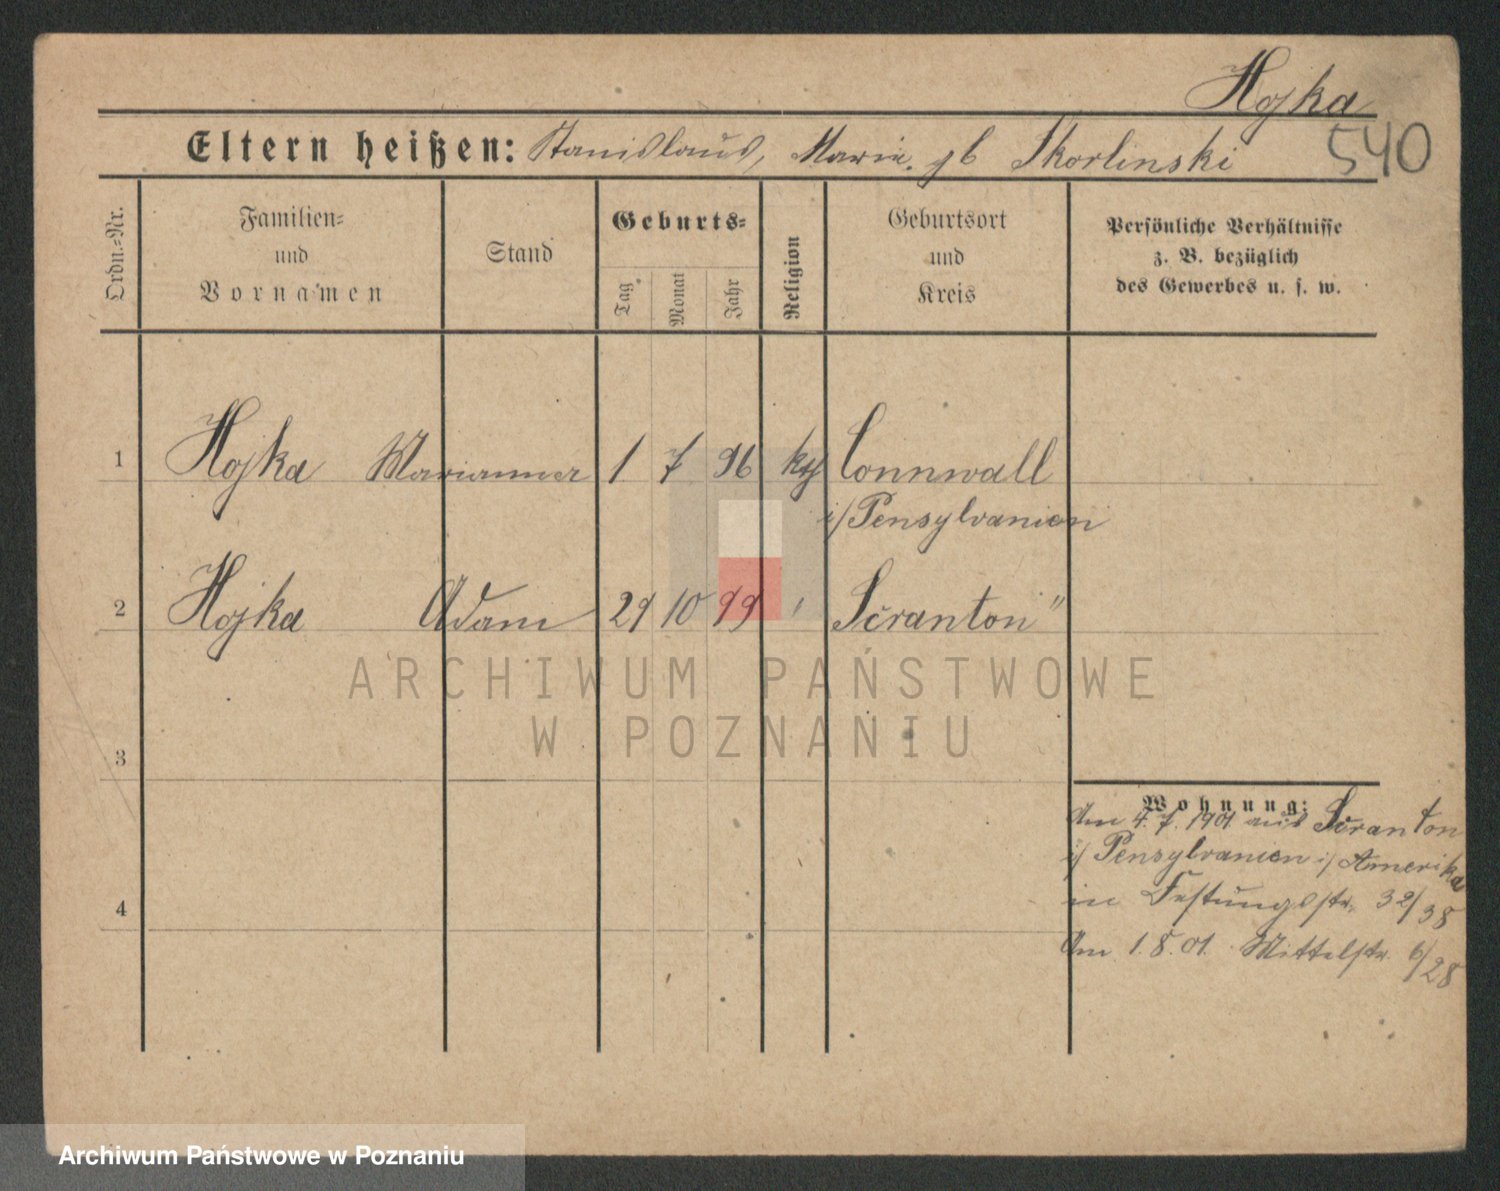 Hojka
Eltern heißen: Stanislaus, Marie. gb Skorlinski 540
Ordn.-Nr.
Familien-
und
Vornamen
Stand
Geburts-
Tag
Monat
Jahr
Religion
Geburtsort
und
Kreis
Persönliche Verhältnisse
z. B. bezüglich
des Gewerbes u. s. w.
1 Hojka Marianna 1 7 96 kth Connwall
i/Pensylvanien
2 Hojka Adam 29 10 99 " Scranton "
ARCHIWUM PAŃSTWOWE
W POZNANIU
3
Wohnung:
Am 4. 7. 1901 aus Scranton
i/ Pensylvanien i/ Amerika
in Festungsstr. 32/38
4
Am 1. 8. 01. Mittelstr. 6/28
Archiwum Państwowe w Poznaniu